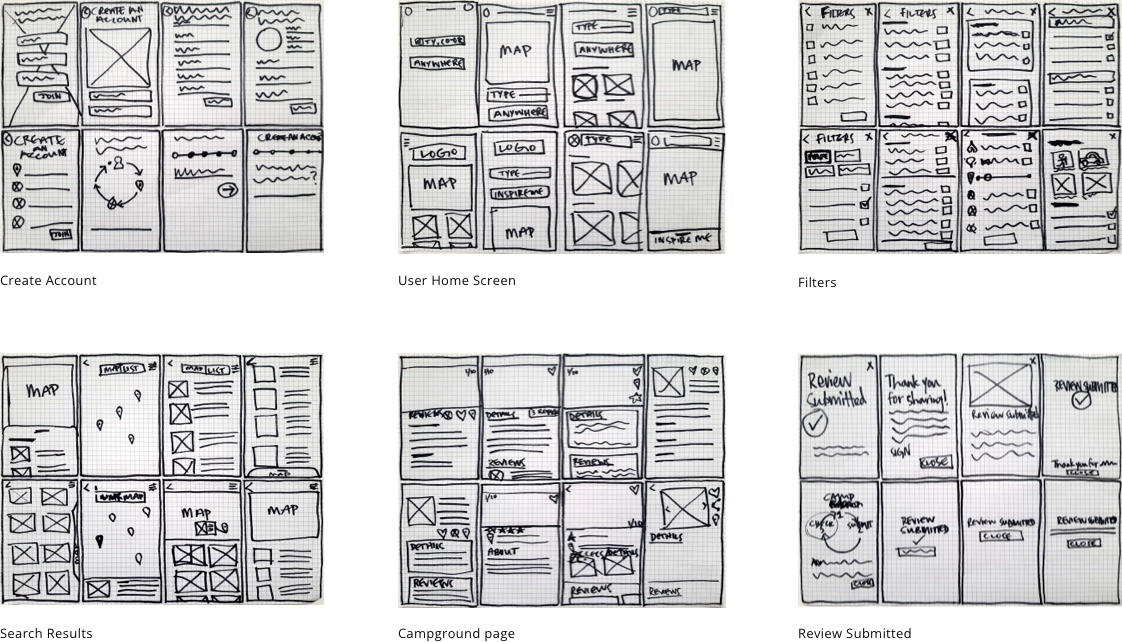 CREATE AN
ACCOUNT
JOIN
CREATE
AN
ACCOUNT
JOIN
CREATE AN
Create Account
ANYWHERE
MAP
TYPE
ANYWHERE
TYPE
ANYWHERE
MAP
LOGO
MAP
LOGO
TYPE
INSPIRE ME
MAP
TYPE
MAP
INSPIRE ME
User Home Screen
FILTERS X
FILTERS X
X
X
FILTERS X
X
X
Filters
MAP
MAP LIST
MAP LIST
MAP
MAP
MAP
Search Results
1/10
REVIEWS
1/10
DETAILS
REVIEWS
1/10
DETAILS
REVIEWS
DETAILS
REVIEWS
1/10
ABOUT
1/10
REVIEWS
DETAILS
REVIEWS
Campground page
X
Review
Submitted
Thank you
for sharing!
SIGN
CLOSE
X
Review Submitted
REVIEW SUBMITTED
Thank you for
CLOSE
CAMP
CHECK
SUBMIT
CLOSE
REVIEW
SUBMITTED
REVIEW SUBMITTED
CLOSE
REVIEW SUBMITTED
CLOSE
Review Submitted